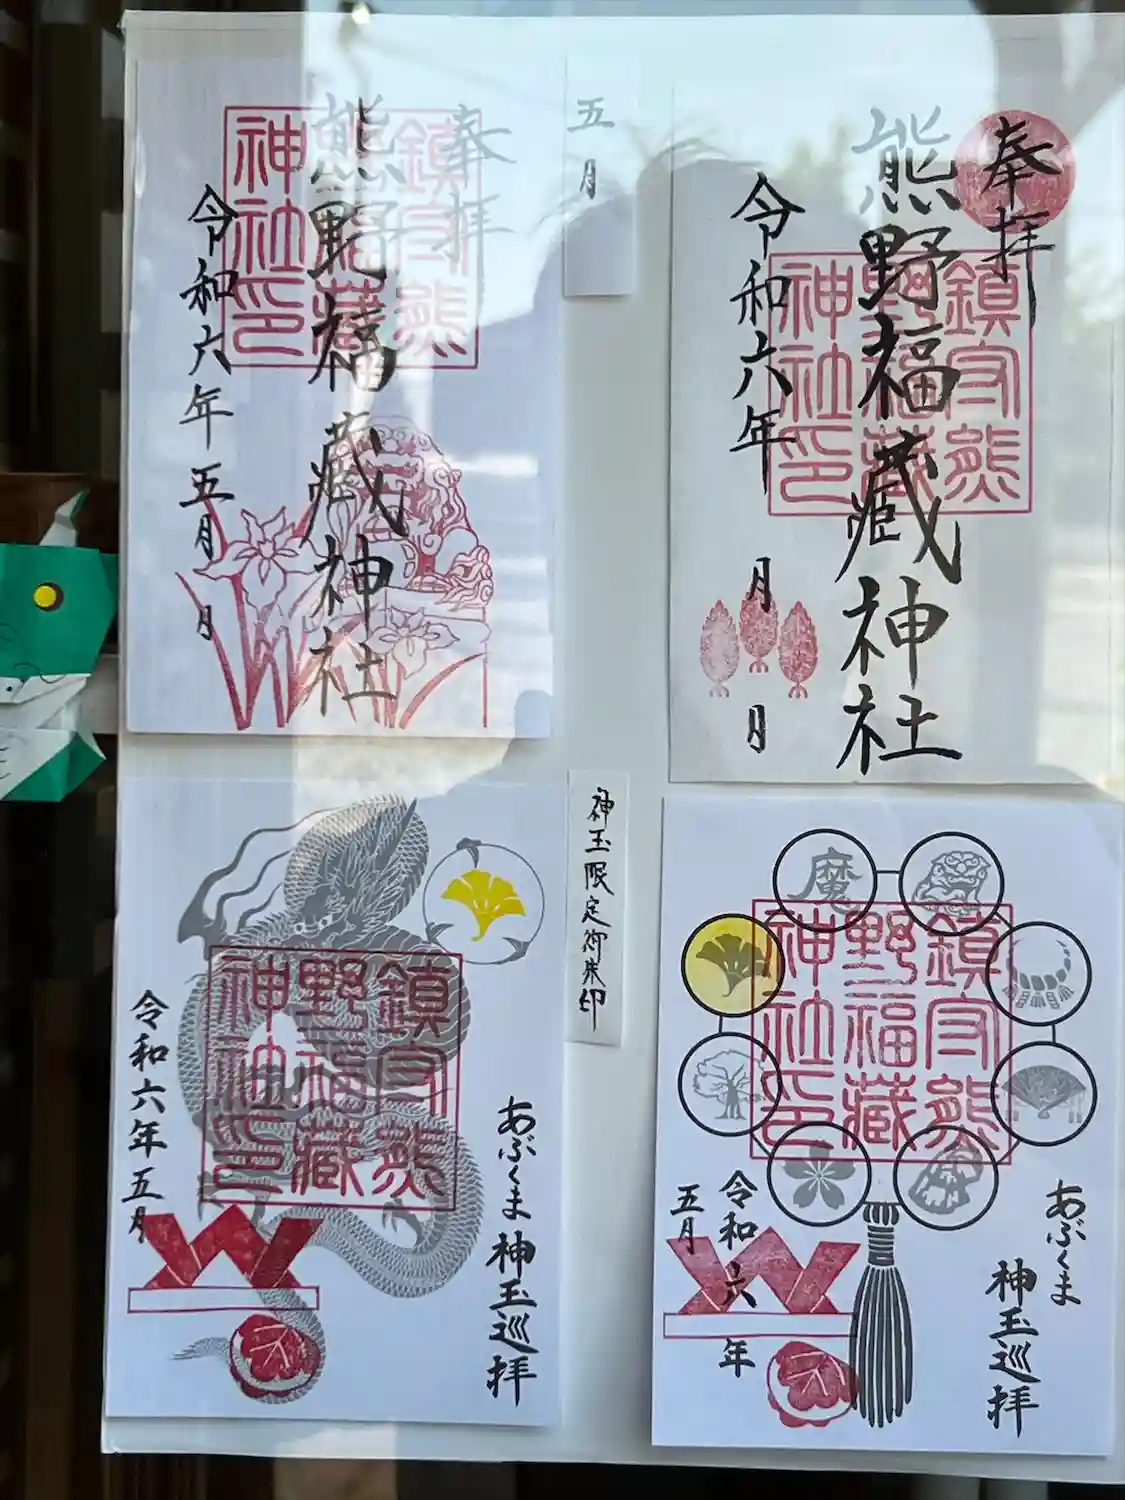 奉拝
熊野福藏神社
令和六年
月
日
鎮守熊
野福藏
神社印
五月
奉拝
熊野福藏神社
令和六年五月
日
鎮守熊
野福藏
神社印
魔
鎮守熊
野福藏
神社印
あぶくま
神玉巡拝
令和六年
五月
神玉限定御朱印
鎮守熊
野福藏
神社印
あぶくま神玉巡拝
令和六年五月